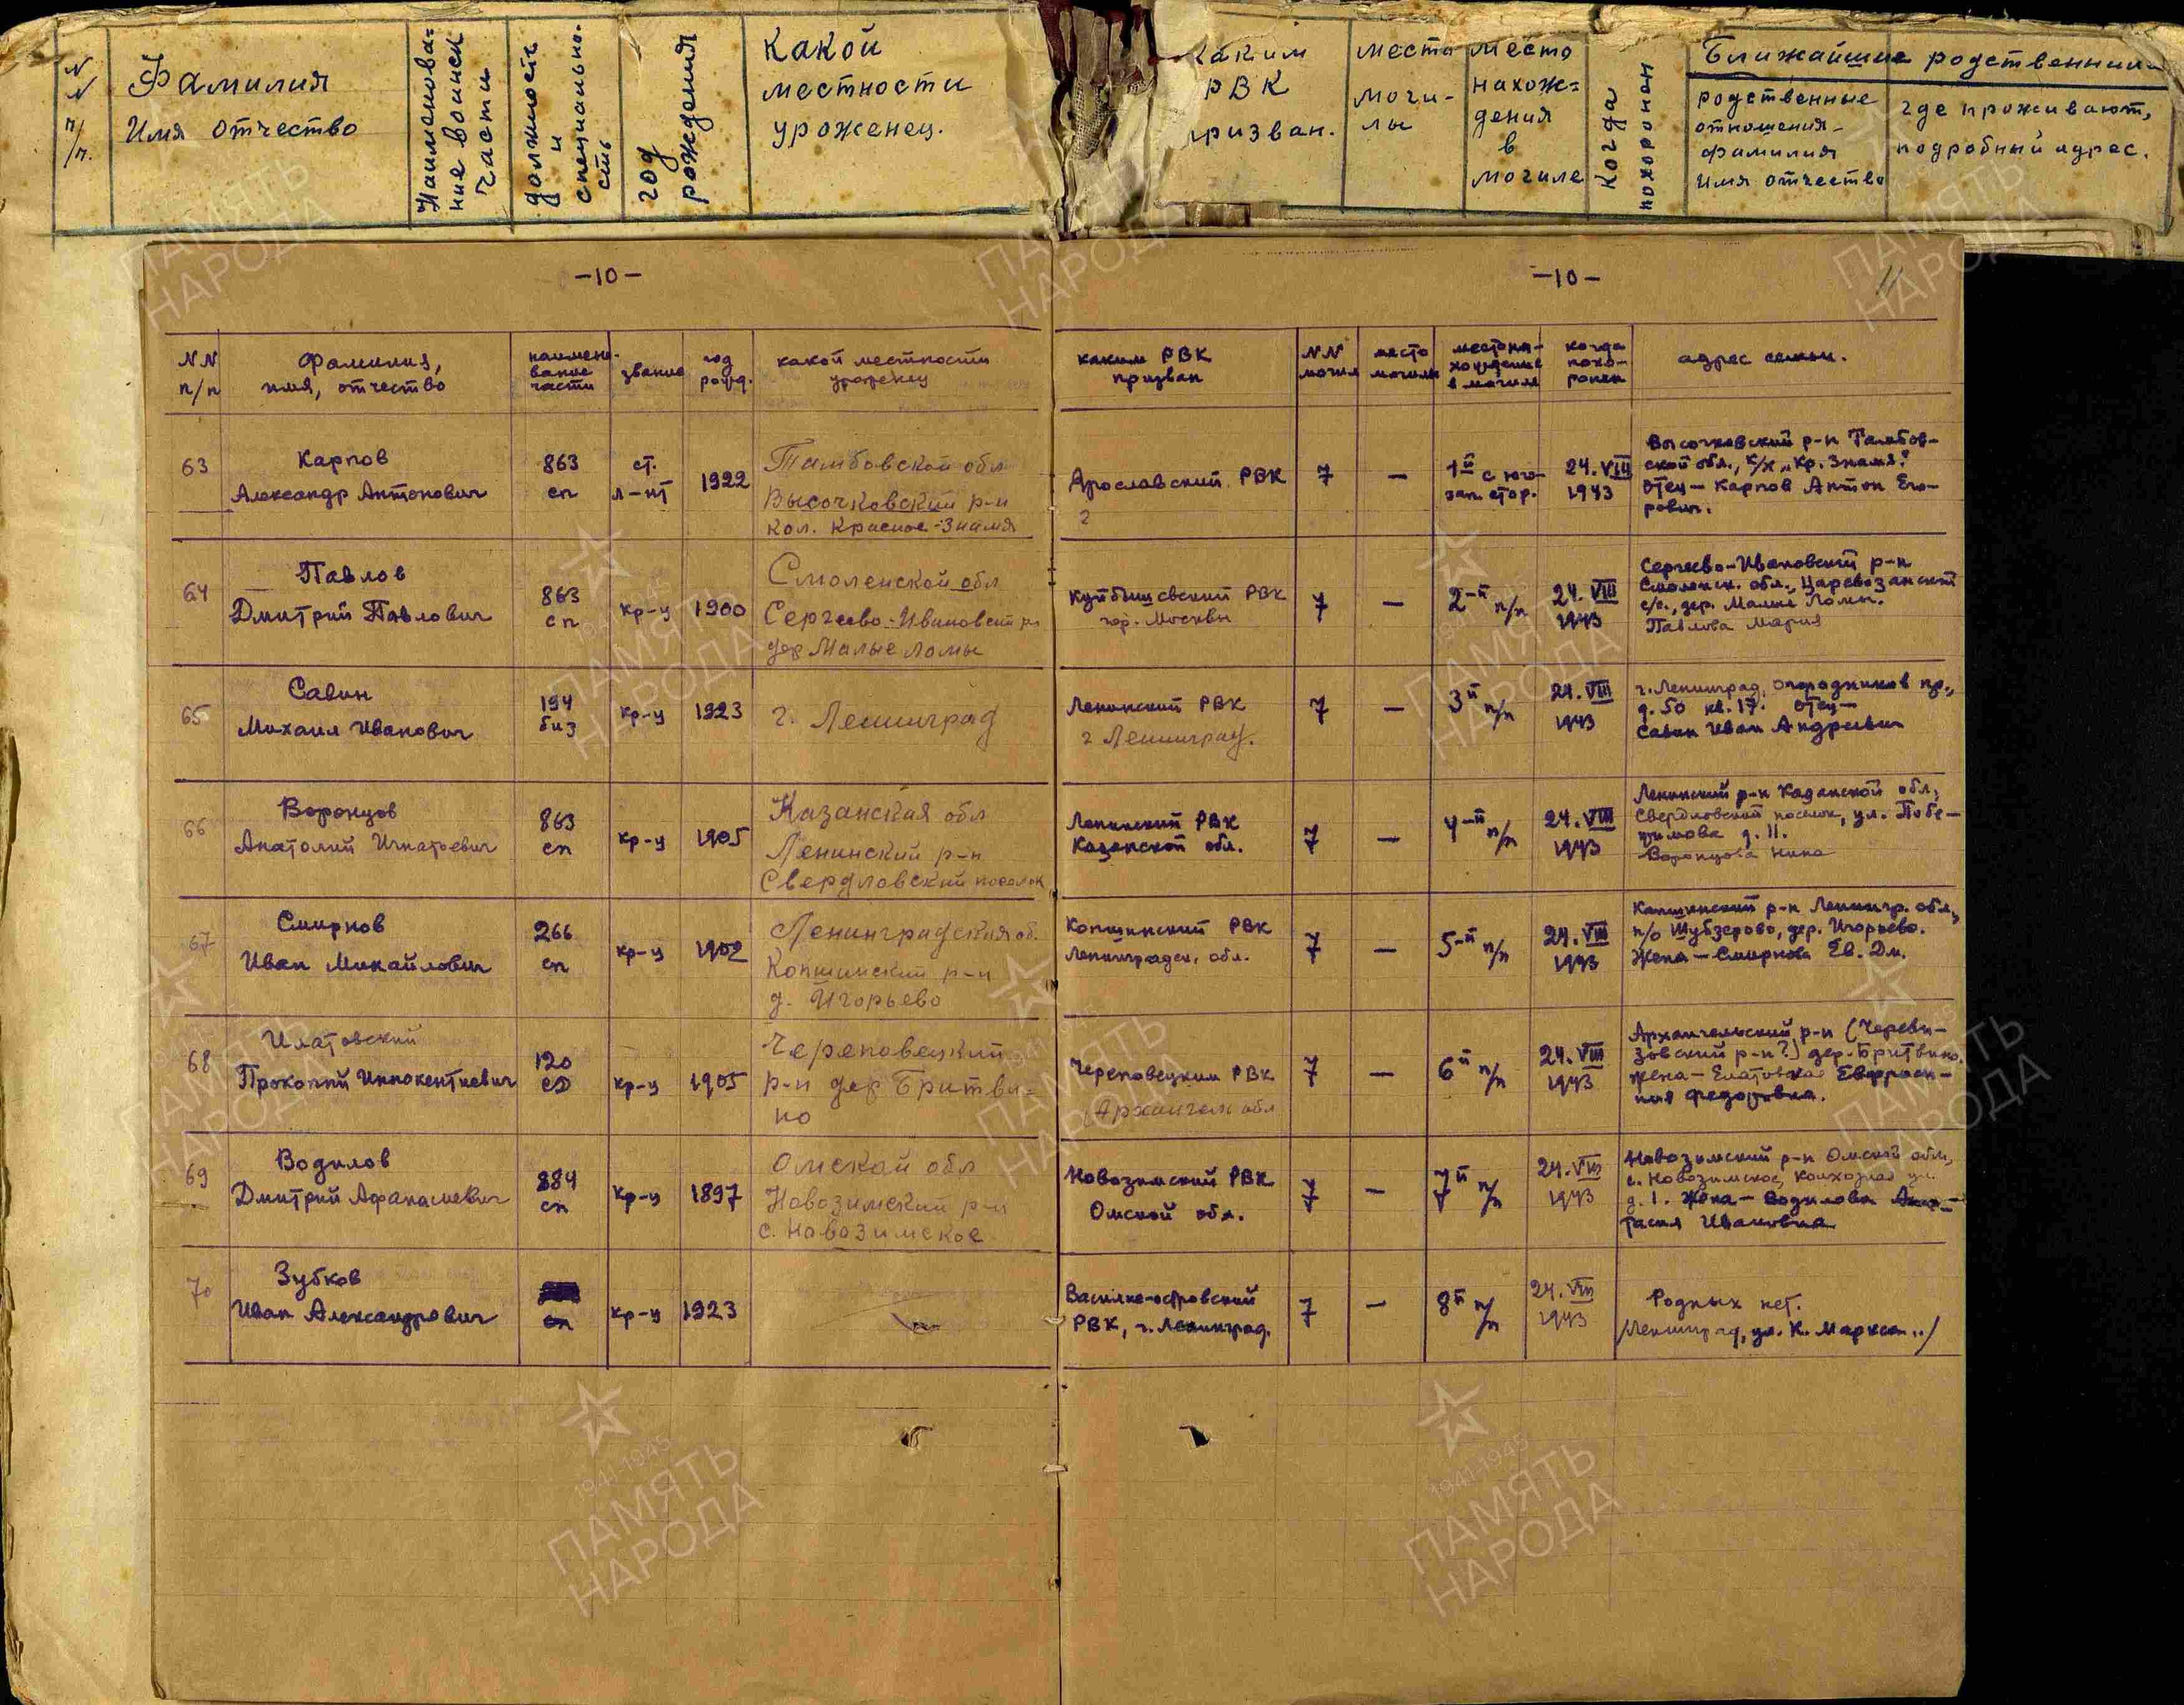 NN п/п.
Фамилия
Имя отчество
Наименова=
ние воинск
части
должность
и
специально-
сть
год
рождения
Какой
местности
уроженец.
каким
РВК
призван.
места
моги-
лы
место
нахож=
дения
в
могиле
Когда
похоронен
Ближайшие родственники
родственные
отношения-
фамилия
имя отчество
где проживают,
подробный адрес.
-10-
-10-
11
NN
п/п
фамилия,
имя, отчество
наимено-
вание
части
звание
год
рожд.
какой местности
уроженец
каким РВК
призван
NN
могил
место
могилы
местона-
хождение
в могиле
когда
похо-
ронен
адрес семьи.
63
Карпов
Александр Антонович
863
сп
ст.
л-нт
1922
Тамбовской обл
Высочковский р-н
кол. Красное-Знамя
Ярославский РВК
7
—
1й с юго-
зап. стор.
24.VIII
1943
Высочковский р-н Тамбов-
ской обл., к/х "Кр. Знамя".
отец — Карпов Антон Его-
рович.
64
Павлов
Дмитрий Павлович
863
сп
кр-ц
1900
Смоленской обл
Сергеево-Ивановский рн
дер Малые Ломы
Куйбышевский РВК
гор. Москвы
7
—
2-й п/п
24.VIII
1943
Сергеево-Ивановский р-н
Смоленск. обл., Царевозанский
с/с., дер. Малые Ломы.
Павлова Мария
65
Савин
Михаил Иванович
194
биз
кр-ц
1923
г. Ленинград
Ленинский РВК
г Ленинград.
7
—
3й п/п
24.VIII
1943
г. Ленинград, Огородников пр.,
д. 50 кв. 17. отец —
Савин Иван Андреевич
66
Воронцов
Анатолий Игнатьевич
863
сп
кр-ц
1905
Казанская обл
Ленинский р-н
Свердловский поселок
Ленинский РВК
Казанской обл.
7
—
4-й п/п
24.VIII
1943
Ленинский р-н Казанской обл,
Свердловский поселок, ул.
д. 11.
Воронцова Нина
67
Смирнов
Иван Михайлович
266
сп
кр-ц
1902
Ленинградския об.
Копшинский р-н
д. Игорьево
Копшинский РВК
Ленинградск. обл.
7
—
5-й п/п
24.VIII
1943
Капшинский р-н Ленингр. обл.,
п/о Шубзерово, дер. Игорьево.
Жена — Смирнова Ев. Дм.
68
Илатовский
Прокопий Иннокентиевич
120
сд
кр-ц
1905
Череповецкий
р-н дер Бритви=
но
Череповецким РВК
Архангел обл
7
—
6й п/п
24.VIII
1943
Архангельский р-н (Череви-
зовский р-н?) дер. Бритвино.
жена — Елатовская Евфроси-
ния Федоровна.
69
Водилов
Дмитрий Афанасиевич
884
сп
кр-ц
1897
Омской обл
Новозимский р-н
с. Новозимское
Новозимский РВК
Омской обл.
7
—
7й п/п
24.VIII
1943
Новозимский р-н Омской обл,
с. Новозимское, Колхозная ул.
д. 1. Жена — Водилова Анас-
тасия Ивановна
70
Зубков
Иван Александрович
сп
кр-ц
1923
Василео-островский
РВК, г. Ленинград.
7
—
8й п/п
24.VIII
1943
Родных нет.
/Ленинград, ул. К. Маркса.../
1941-1945
ПАМЯТЬ
НАРОДА